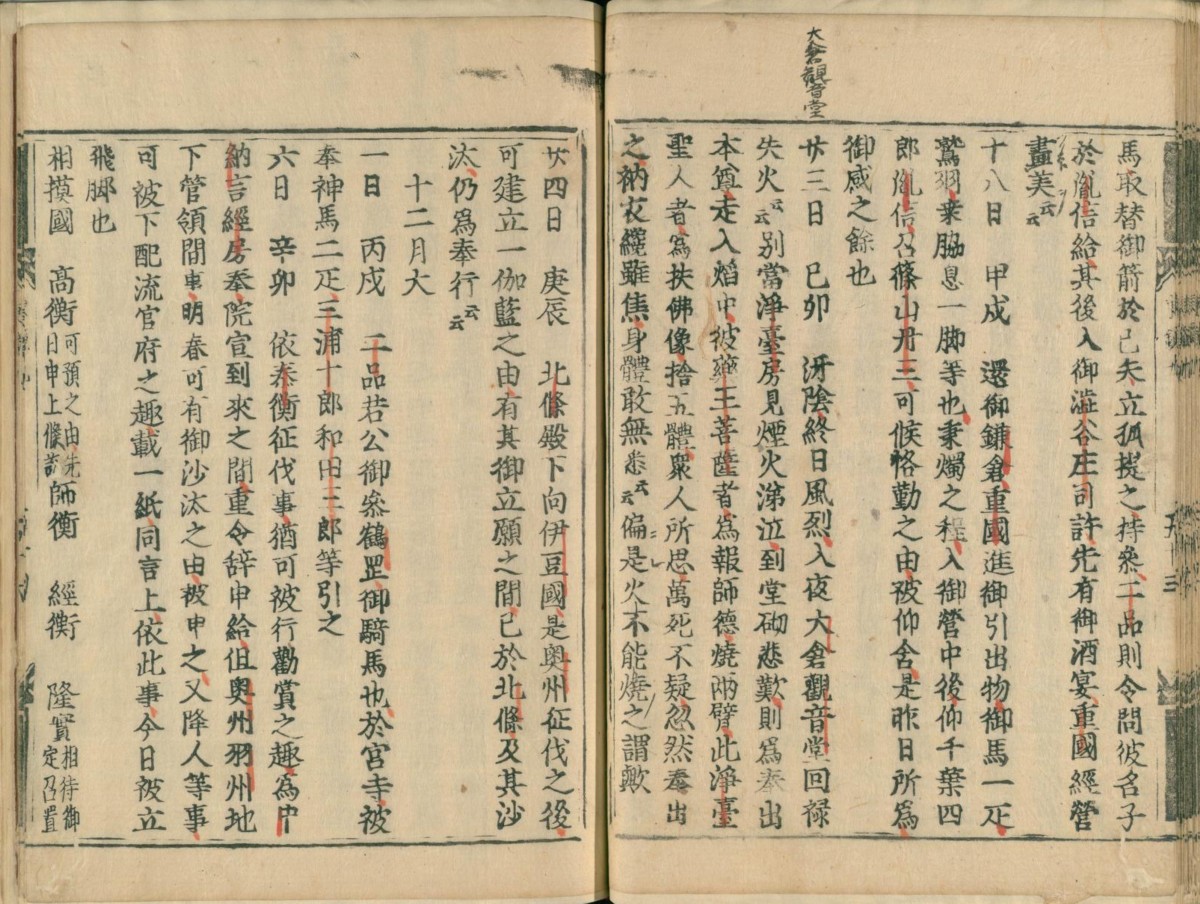 大倉觀音堂
馬取替御箭於己矢立孤提之持參二品則令問彼名子
於胤信給其後入御澁谷庄司許先有御酒宴重國經營
盡美云云
十八日 甲戌 還御鎌倉重國進御引出物御馬一疋
鷲羽桒脇息一脚等也秉燭之程入御營中後仰千葉四
郎胤信召篠山丹三可候恪勤之由被仰舍是昨日所爲
御感之餘也
廿三日 己卯 冴陰終日風烈入夜大倉觀音堂回禄
失火云云別當淨臺房見煙火涕泣到堂砌悲歎則爲奉出
本尊走入焰中彼藥王菩薩者爲報師德燒兩臂此淨臺
聖人者爲扶佛像捨五體衆人所思萬死不疑忽然奉出
之衲衣纔雖焦身體敢無恙云云偏是火不能燒之謂歟
廿四日 庚辰 北條殿下向伊豆國是奥州征伐之後
可建立一伽藍之由有其御立願之間已於北條及其沙
汰仍爲奉行云云
十二月大
一日 丙戌 二品若公御參鶴罡御騎馬也於宮寺被
奉神馬二疋三浦十郎和田三郎等引之
六日 辛卯 依泰衡征伐事猶可被行勸賞之趣爲中
納言經房奉院宣到來之間重令辞申給但奥州羽州地
下管領間事明春可有御沙汰之由被申之又降人等事
可被下配流官府之趣載一紙同言上依此事今日被立
飛脚也
相摸國 高衡可預之由先日申上候訖 師衡 經衡 隆實相待御定召置